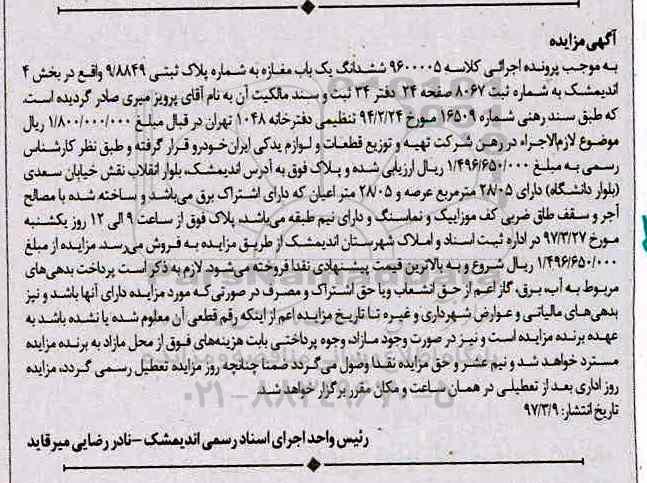 آگهی مزایده
به موجب پرونده اجرائی کلاسه ۹۶۰۰۰۰۵ ششدانگ یک باب مغازه به شماره پلاک ثبتی ۹/۸۸۴۹ واقع در بخش ۴
اندیمشک به شماره ثبت ۸۰۶۷ صفحه ۲۴ دفتر ۳۴ ثبت و سند مالکیت آن به نام آقای پرویز میری صادر گردیده است،
که طبق سند رهنی شماره ۱۶۵۰۹ مورخ ۹۴/۲/۲۴ تنظیمی دفترخانه ۱۰۴۸ تهران در قبال مبلغ ۱/۸۰۰/۰۰۰/۰۰۰ ریال
موضوع لازم‌الاجراء در رهن شرکت تهیه و توزیع قطعات و لوازم یدکی ایران‌خودرو قرار گرفته و طبق نظر کارشناس
رسمی به مبلغ ۱/۴۹۶/۶۵۰/۰۰۰ ریال ارزیابی شده و پلاک فوق به آدرس اندیمشک، بلوار انقلاب نقش خیابان سعدی
(بلوار دانشگاه) دارای ۲۸/۰۵ مترمربع عرصه و ۲۸/۰۵ متر اعیان که دارای اشتراک برق می‌باشد و ساخته شده با مصالح
آجر و سقف طاق ضربی کف موزاییک و نماسنگ و دارای نیم طبقه می‌باشد، پلاک فوق از ساعت ۹ الی ۱۲ روز یکشنبه
مورخ ۹۷/۳/۲۷ در اداره ثبت اسناد و املاک شهرستان اندیمشک از طریق مزایده به فروش می‌رسد. مزایده از مبلغ
۱/۴۹۶/۶۵۰/۰۰۰ ریال شروع و به بالاترین قیمت پیشنهادی نقدا فروخته می‌شود. لازم به ذکر است پرداخت بدهی‌های
مربوط به آب، برق، گاز اعم از حق انشعاب ویا حق اشتراک و مصرف در صورتی‌که مورد مزایده دارای آنها باشد و نیز
بدهی‌های مالیاتی و عوارض شهرداری و غیره تا تاریخ مزایده اعم از اینکه رقم قطعی آن معلوم شده یا نشده باشد به
عهده برنده مزایده است و نیز در صورت وجود مازاد، وجوه پرداختی بابت هزینه‌های فوق از محل مازاد به برنده مزایده
مسترد خواهد شد و نیم عشر و حق مزایده نقدا وصول می‌گردد ضمنا چنانچه روز مزایده تعطیل رسمی گردد، مزایده
روز اداری بعد از تعطیلی در همان ساعت و مکان مقرر برگزار خواهد شد.
تاریخ انتشار: ۹۷/۳/۹
رئیس واحد اجرای اسناد رسمی اندیمشک - نادر رضایی میرقاید
۰۲۱-۸۸۳۴۹۶۷۰-۵